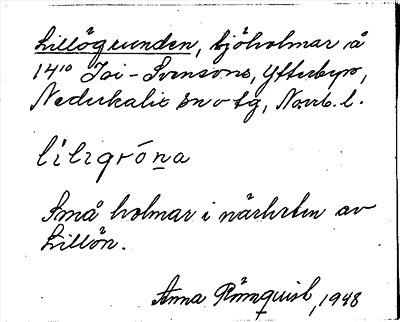 Lillögrunden, sjöholmar å
14¹⁰ Joi-Svensons, Ytterbyn,
Nederkalix sn o tg, Norrb. l.
lilzgróna
Små holmar i närheten av
Lillön.
Anna Römquist, 1948